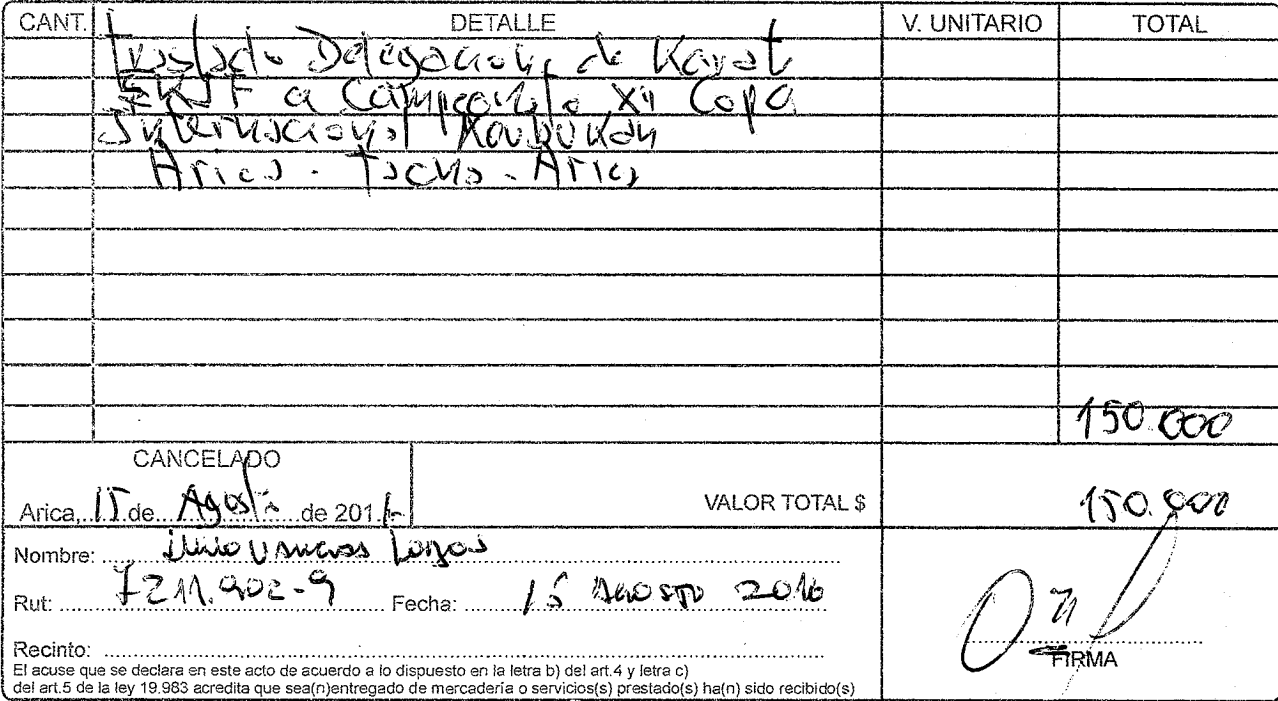 CANT. DETALLE V. UNITARIO TOTAL
Traslado Delegacion de Karat
a Campeonato XII Copa
Internacional
Arica - Tacna - Arica
150.000
CANCELADO
Arica, 15 de Agosto de 201
VALOR TOTAL $ 150.000
Nombre:
Rut: 7211.902-9 Fecha: 15 AGOSTO 2016
Recinto:
FIRMA
El acuse que se declara en este acto de acuerdo a lo dispuesto en la letra b) del art.4 y letra c)
del art.5 de la ley 19.983 acredita que sea(n)entregado de mercadería o servicios(s) prestado(s) ha(n) sido recibido(s)